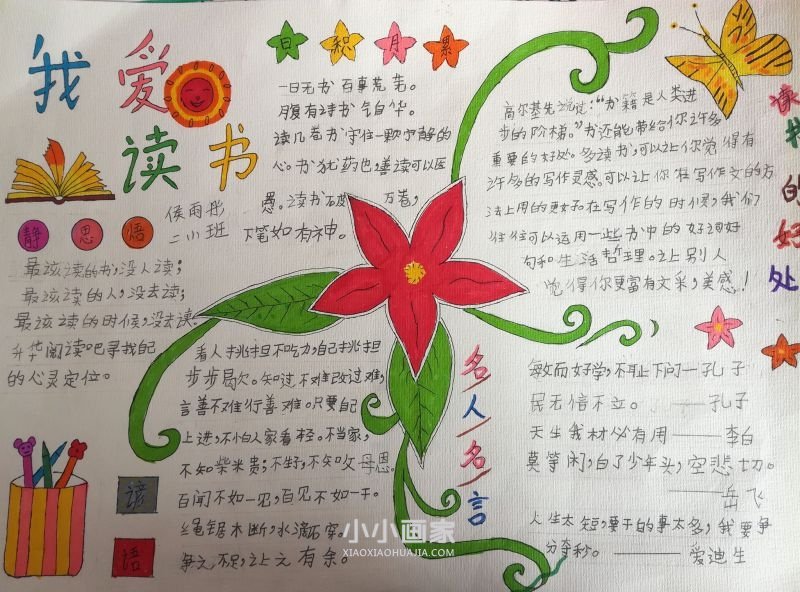 我爱读书
日积月累
一日无书 百事荒芜。
腹有诗书 气自华。
读几卷书守住一颗宁静的
心。书犹药也,善读可以医
愚。读书破 万卷,
下笔如有神。
侯雨彤
二小班
静思悟
最该读的书,没人读;
最该读的人,没去读;
最该读的时候,没去读。
升华阅读吧寻找自己
的心灵定位。
读书的好处
高尔基先生说过:“书籍是人类进
步的阶梯。”书还能带给你许多
重要的好处。多读书,可以让你觉得有
许多的写作灵感。可以让你在写作文的方
法上用的更好。在写作的时候,我们
往往可以运用一些书中的好词好
句和生活哲理。让别人
觉得你更富有文采,美感!
谚语
看人挑担不吃力,自己挑担
步步歇。知过不难改过难,
言善不难行善难。只要自
上进,不怕人家看轻。不当家,
不知柴米贵;不生子,不知父母恩。
百闻不如一见,百见不如一干。
绳锯木断,水滴石穿。
争之不足,让之有余。
名人名言
敏而好学,不耻下问—孔子
民无信不立。——孔子
天生我材必有用——李白
莫等闲,白了少年头,空悲切。
——岳飞
人生太短,要干的事太多,我要争
分夺秒。——爱迪生
小小画家
XIAOXIAOHUAJIA.COM